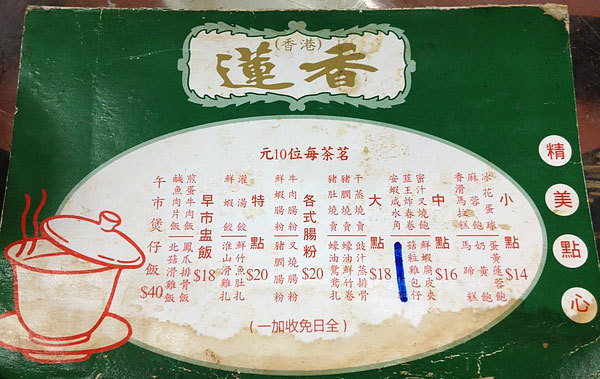 (香港)
蓮香
茗茶每位10元
小點 $14
冰花蛋球 蛋黃蓮蓉飽
麻蓉飽 奶黃飽
香滑馬拉糕 馬蹄糕
中點 $16
密汁叉燒飽 鮮蝦腐皮夾
韮王炸春卷 菇粒雞包仔
安蝦咸水角
大點 $18
干蒸燒賣 豉汁蒸排骨
豬膶燒賣 蠔油鮮竹卷
豬肚燒賣 蠔油鴛鴦扎
各式腸粉 $20
牛肉腸粉 叉燒腸粉
鮮蝦腸粉 豬膶腸粉
特點 $20
灌湯餃 鮮竹魚肚扎
鮮蝦餃 淮山滑雞扎
早市盅飯 $18
煎蛋牛肉飯 鳳爪排骨飯
鹹魚肉片飯 北菇滑雞飯
午市煲仔飯 $40
(全日免收加一)
精美點心